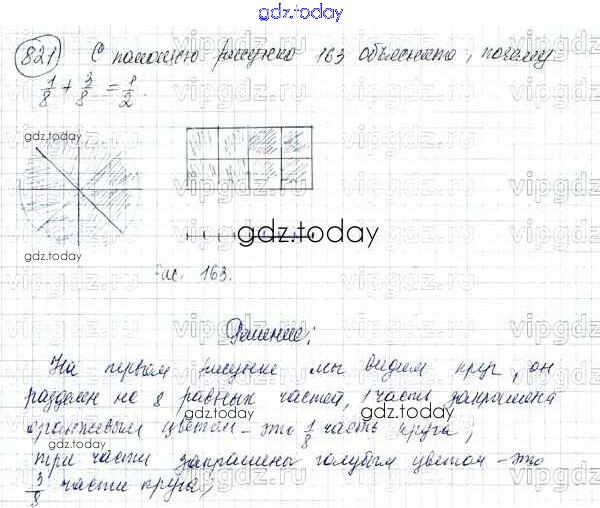 gdz.today
821 С помощью рисунка 163 объясните, почему
1/8 + 3/8 = 1/2.
gdz.today
gdz.today
gdz.today
gdz.today
Рис. 163.
Решение:
На первом рисунке мы видим круг, он
разделен на 8 равных частей, 1 часть закрашена
оранжевым цветом – это 1/8 часть круга,
gdz.today
три части закрашены голубым цветом – это
3/8 части круга,
gdz.today
vipgdz.ru